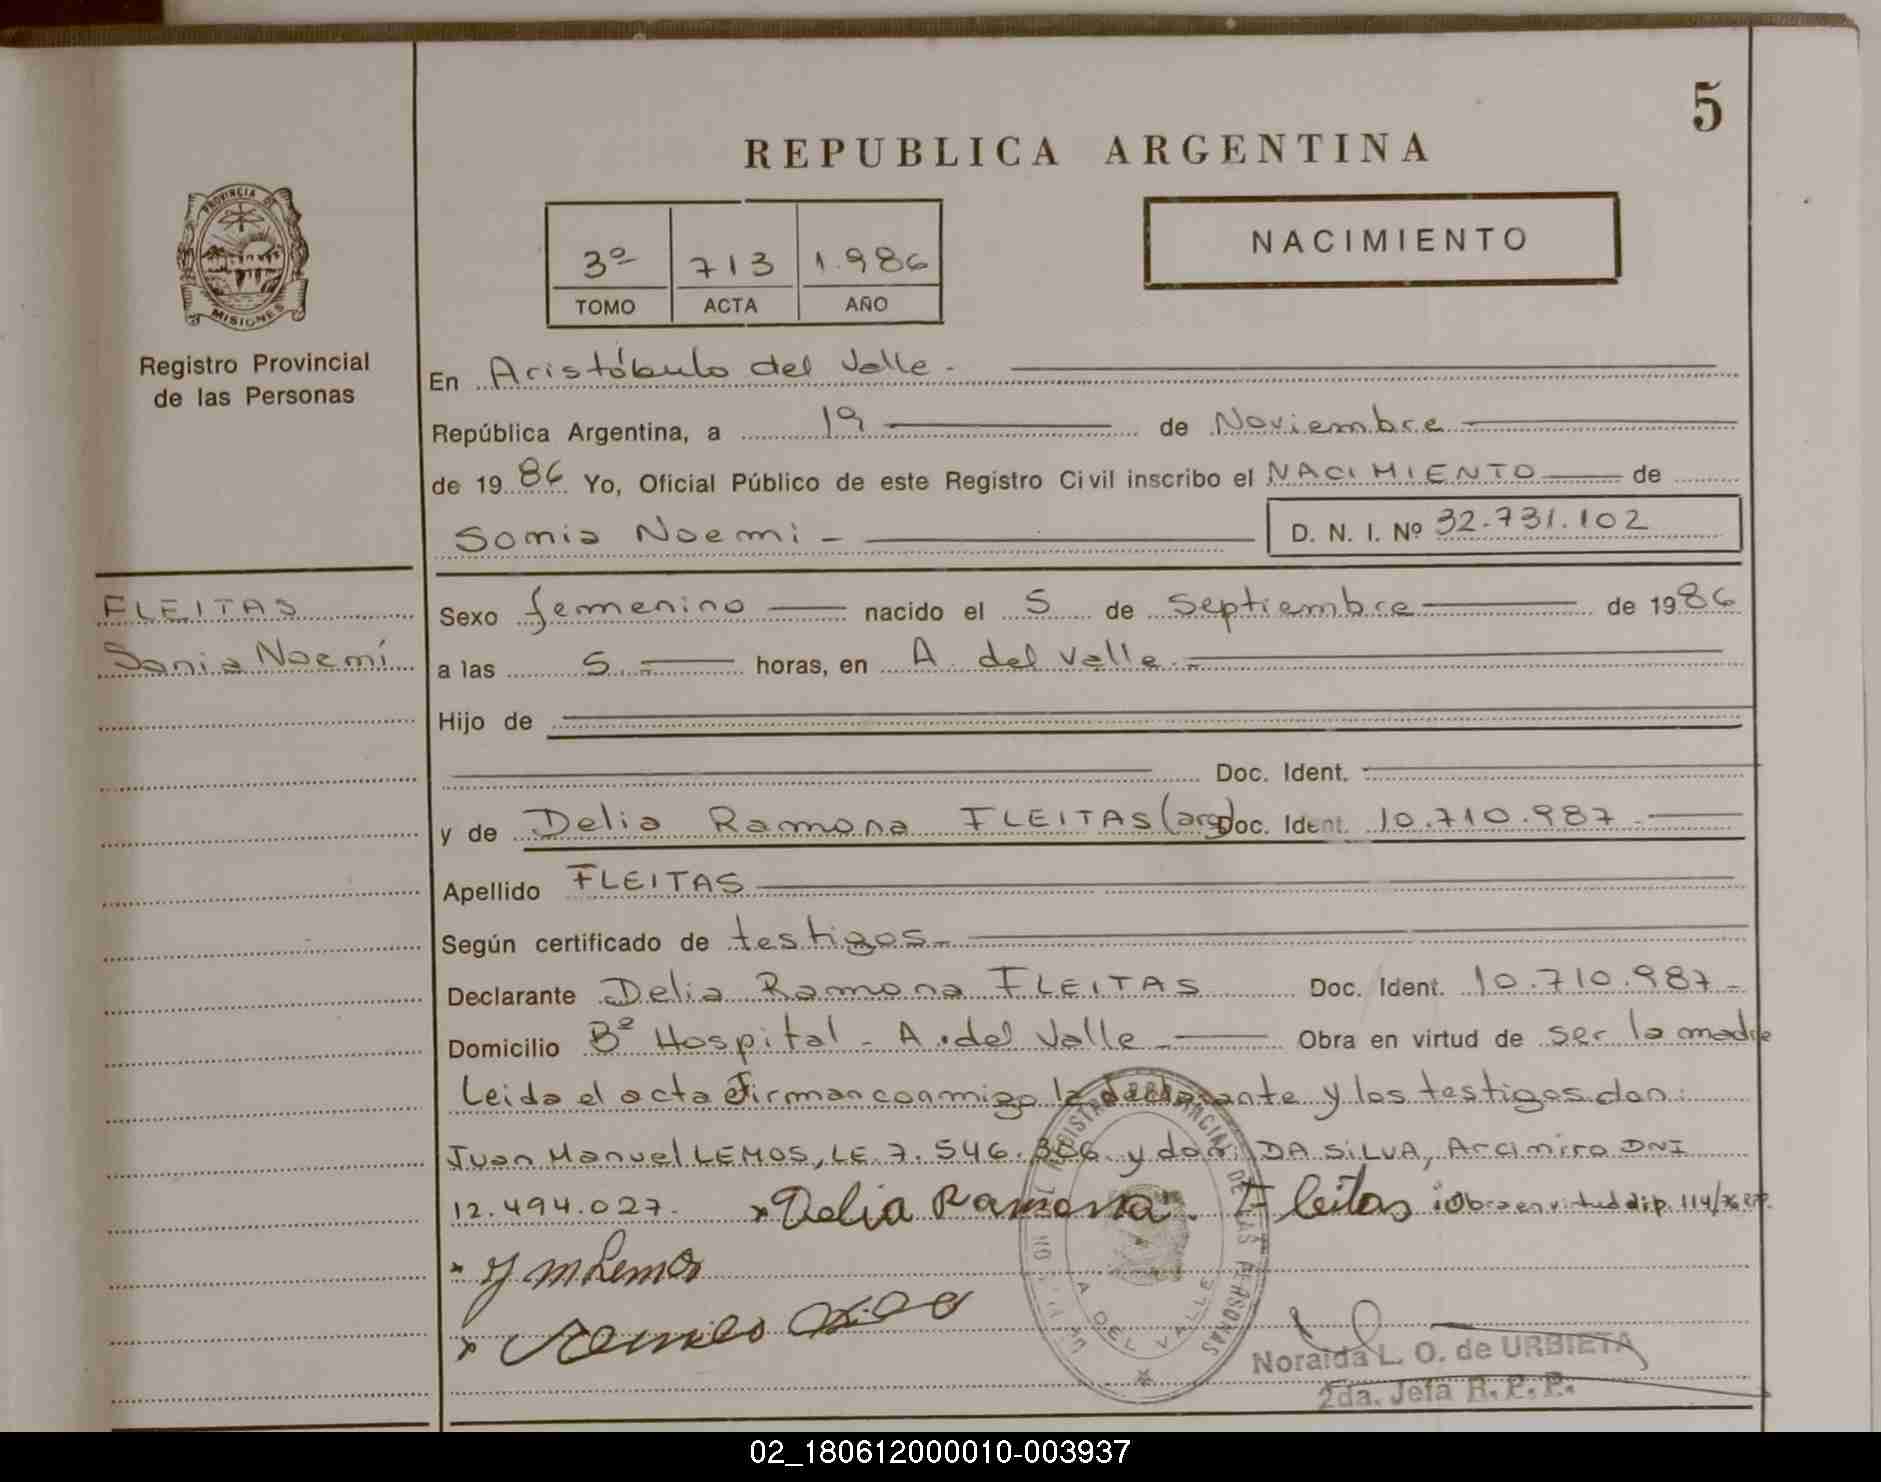 5
REPUBLICA ARGENTINA
PROVINCIA DE
MISIONES
Registro Provincial
de las Personas
3º 713 1.986
TOMO ACTA AÑO
NACIMIENTO
En Aristóbulo del Valle.
República Argentina, a 19 de Noviembre
de 1986 Yo, Oficial Público de este Registro Civil inscribo el NACIMIENTO de
Sonia Noemi - D. N. I. Nº 32.731.102
FLEITAS
Sonia Noemí
Sexo femenino nacido el 5 de Septiembre de 1986
a las 5.- horas, en A. del Valle.-
Hijo de
Doc. Ident.
y de Delia Ramona FLEITAS (arg) Doc. Ident. 10.710.987.-
Apellido FLEITAS
Según certificado de testigos.-
Declarante Delia Ramona FLEITAS Doc. Ident. 10.710.987.-
Domicilio Bº Hospital - A. del Valle.- Obra en virtud de ser la madre
Leida el acta firman conmigo la declarante y los testigos don:
Juan Manuel LEMOS, LE 7.546.386 y don DA SILVA, Arcimiro DNI
12.494.027. Delia Ramona Fleitas Obra en virtud dip. 114/76 RPP.
J M Lemos
REGISTRO PROVINCIAL DE LAS PERSONAS
A DEL VALLE
Noraida L. O. de URBIETA
2da. Jefa R. P. P.
02_180612000010-003937